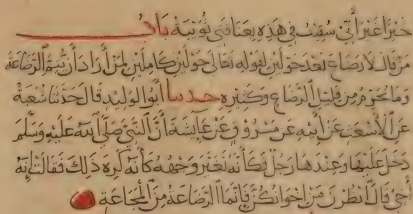 خيرا غير أني سقيت في هذه بعتاقتي ثويبة باب
من قال لا رضاع بعد حولين لقوله تعالى حولين كاملين لمن أراد أن يتم الرضاعة
وما يحرم من قليل الرضاع وكثيره حدثنا أبو الوليد قال حدثنا شعبة
عن الأشعث عن أبيه عن مسروق عن عايشة أن النبي صلى الله عليه وسلم
دخل عليها وعندها رجل فكأنه تغير وجهه كأنه كره ذلك فقالت إنه
أخي قال انظرن من اخوانكن فإنما الرضاعة من المجاعة